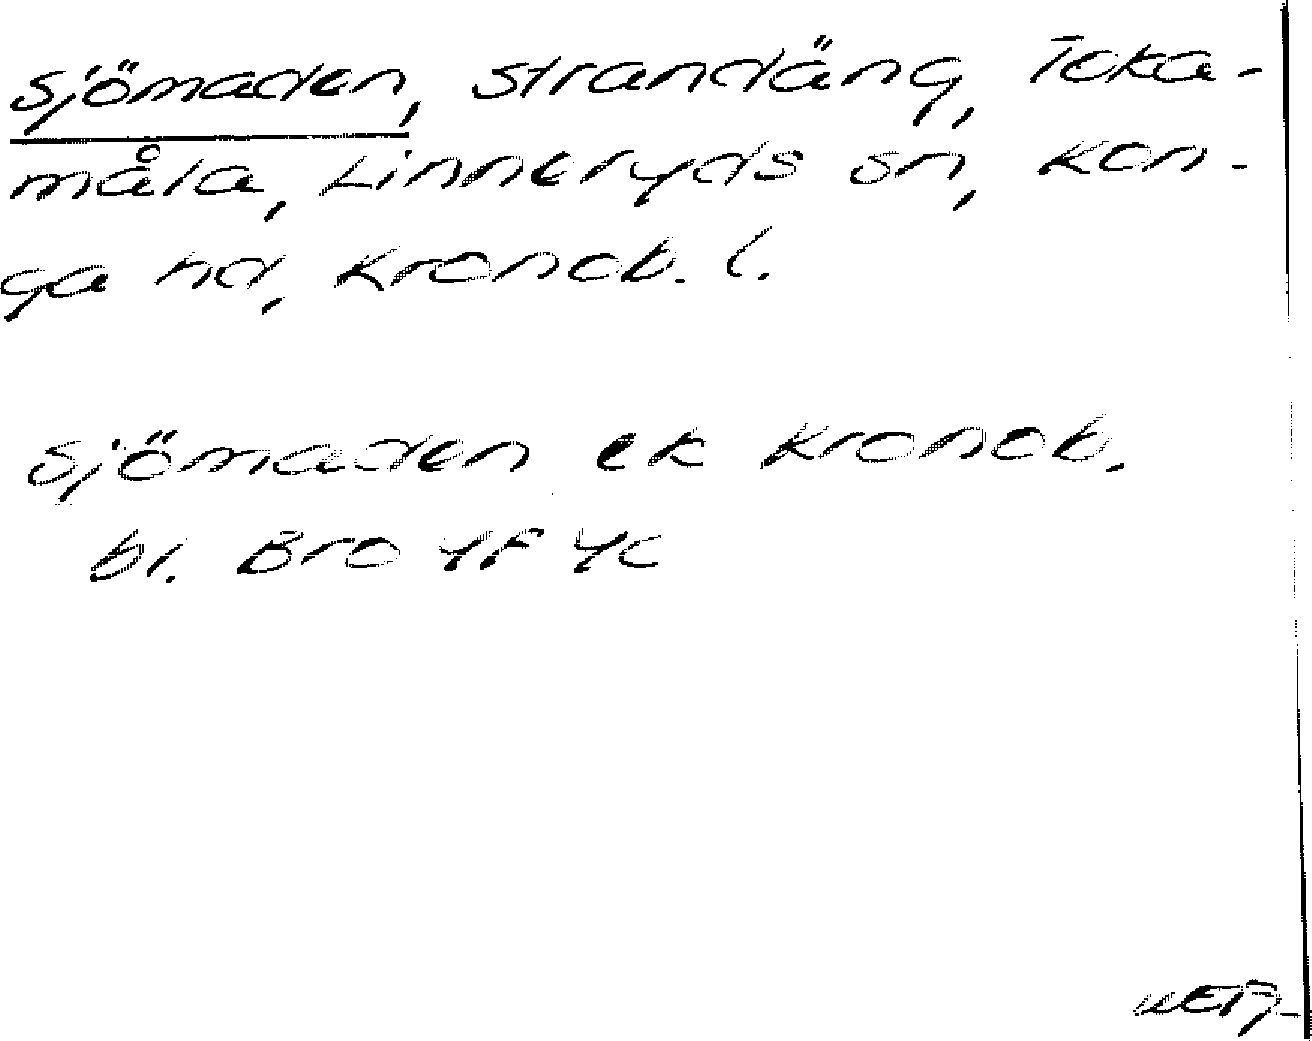 sjömaden, strandäng, Toka-
måla, Linneryds sn, Kon-
ga hd, Kronob. l.
sjömaden ek Kronob.
bl. Bro 4F 4c